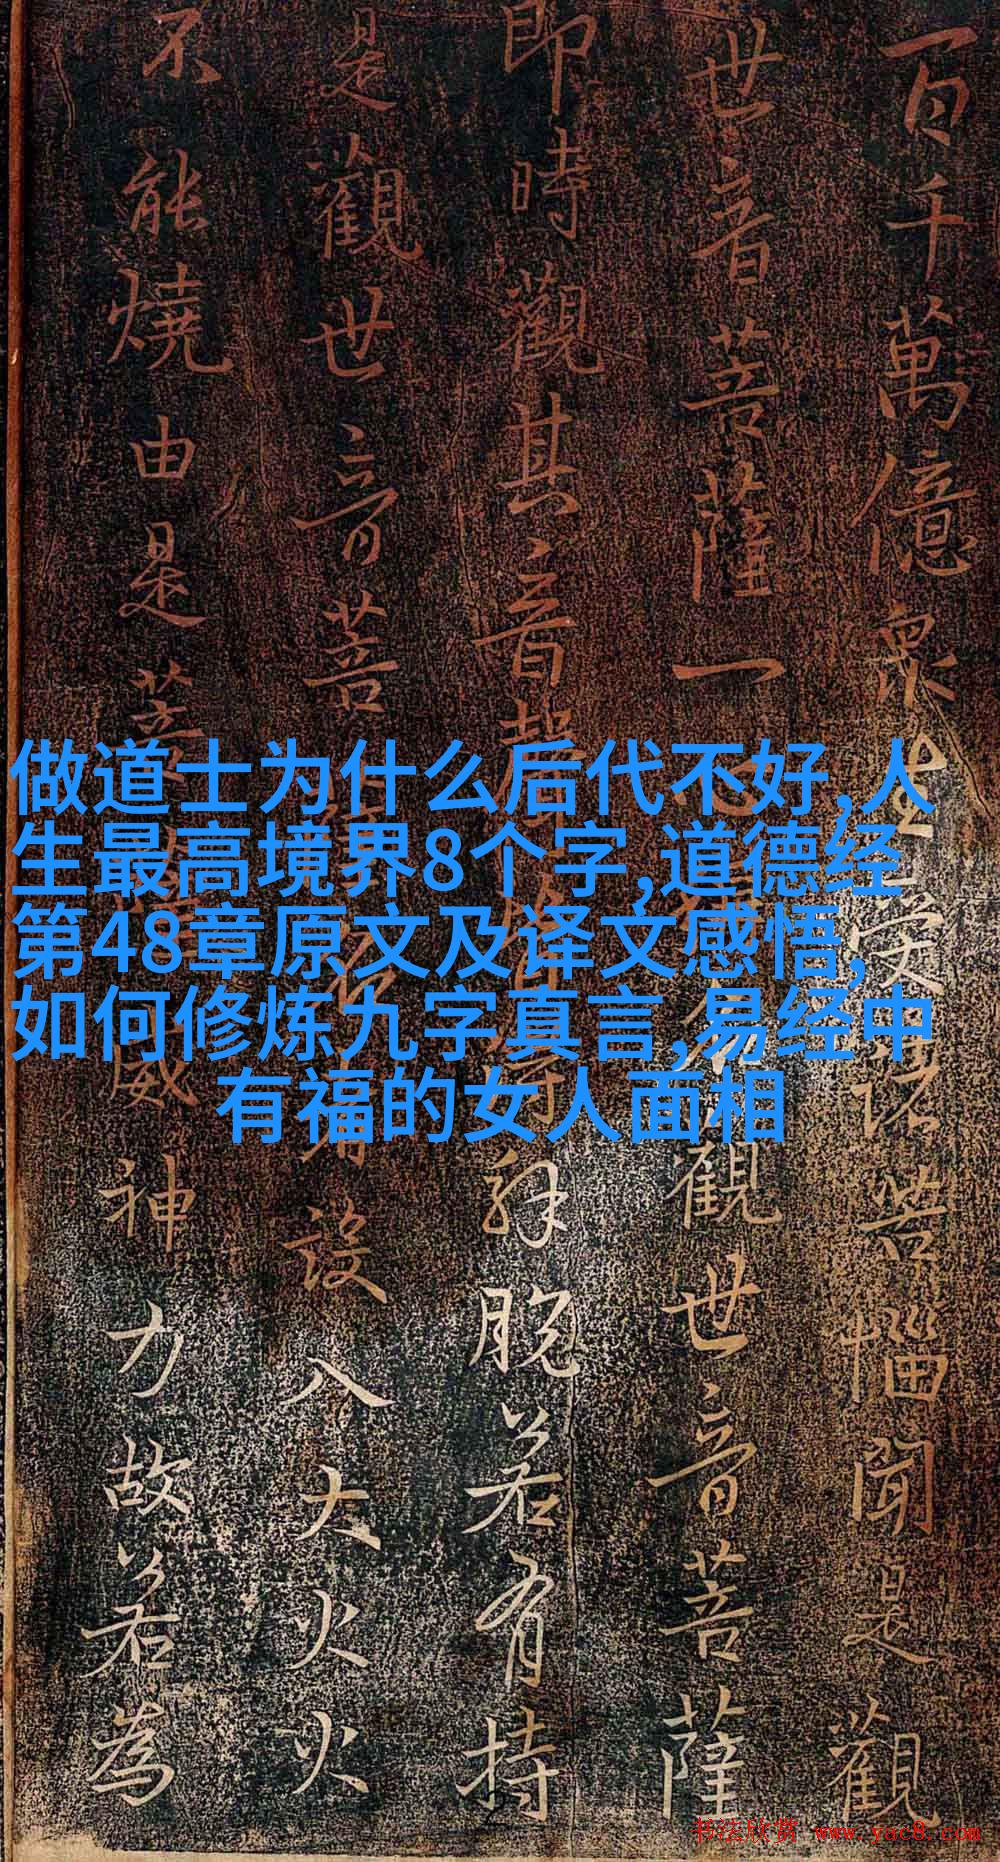 百千萬億眾生受諸苦惱聞是觀
世音菩薩一心觀世音菩薩
即時觀其音聲解脫若有持
是觀世音菩設入大火火
不能燒由是菩威神力故若為
做道士为什么后代不好,人
生最高境界8个字,道德经
第48章原文及译文感悟,
如何修炼九字真言,易经中
有福的女人面相
书法欣赏 www.yac8.com